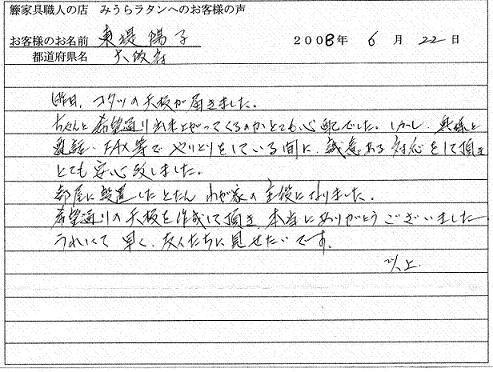 籐家具職人の店　みうらラタンへのお客様の声
お客様のお名前　東堤陽子　2008年 6月 22日
都道府県名　大阪府
昨日、コタツの天板が届きました。
ちゃんと希望通り出来上がってくるのかとても心配でした。しかし、奥様と
電話・FAX等でやりとりをしている間に、誠意ある対応をして頂き
とても安心致しました。
部屋に設置したとたん わが家の主役になりました。
希望通りの天板を作成して頂き、本当にありがとうございました
うれしくて 早く、友人たちに見せたいです。
以上